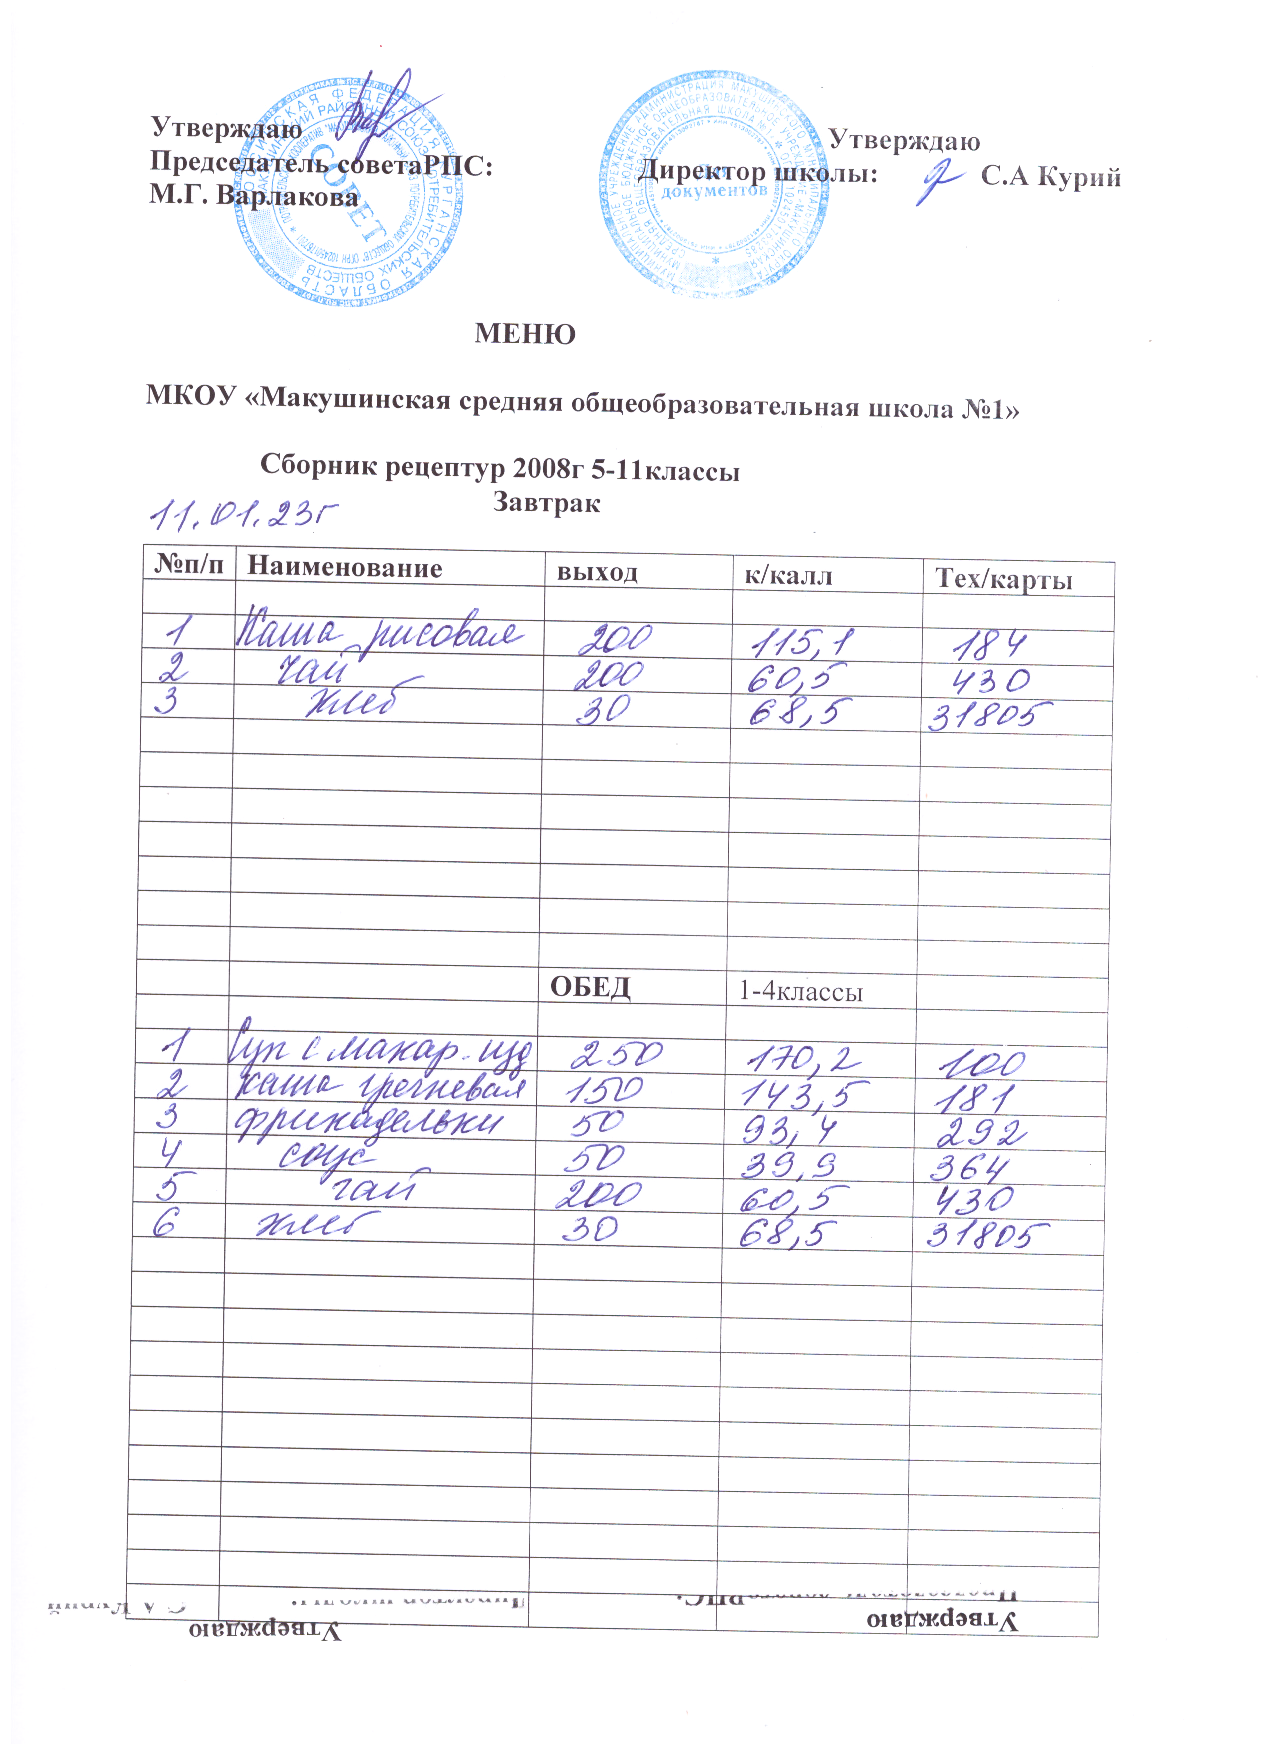 Утверждаю
Председатель советаРПС:
М.Г. Варлакова
Утверждаю
Директор школы: С.А Курий
СОВЕТ
Для
документов
МЕНЮ
МКОУ «Макушинская средняя общеобразовательная школа №1»
Сборник рецептур 2008г 5-11классы
Завтрак
11.01.23г
№п/п Наименование выход к/калл Тех/карты
1 Каша рисовая 200 115,1 184
2 чай 200 60,5 430
3 хлеб 30 68,5 31805
ОБЕД 1-4классы
1 Суп с макар. изд 250 170,2 100
2 каша гречневая 150 143,5 181
3 фрикадельки 50 93,4 292
4 соус 50 39,9 364
5 чай 200 60,5 430
6 хлеб 30 68,5 31805
Утверждаю
Утверждаю